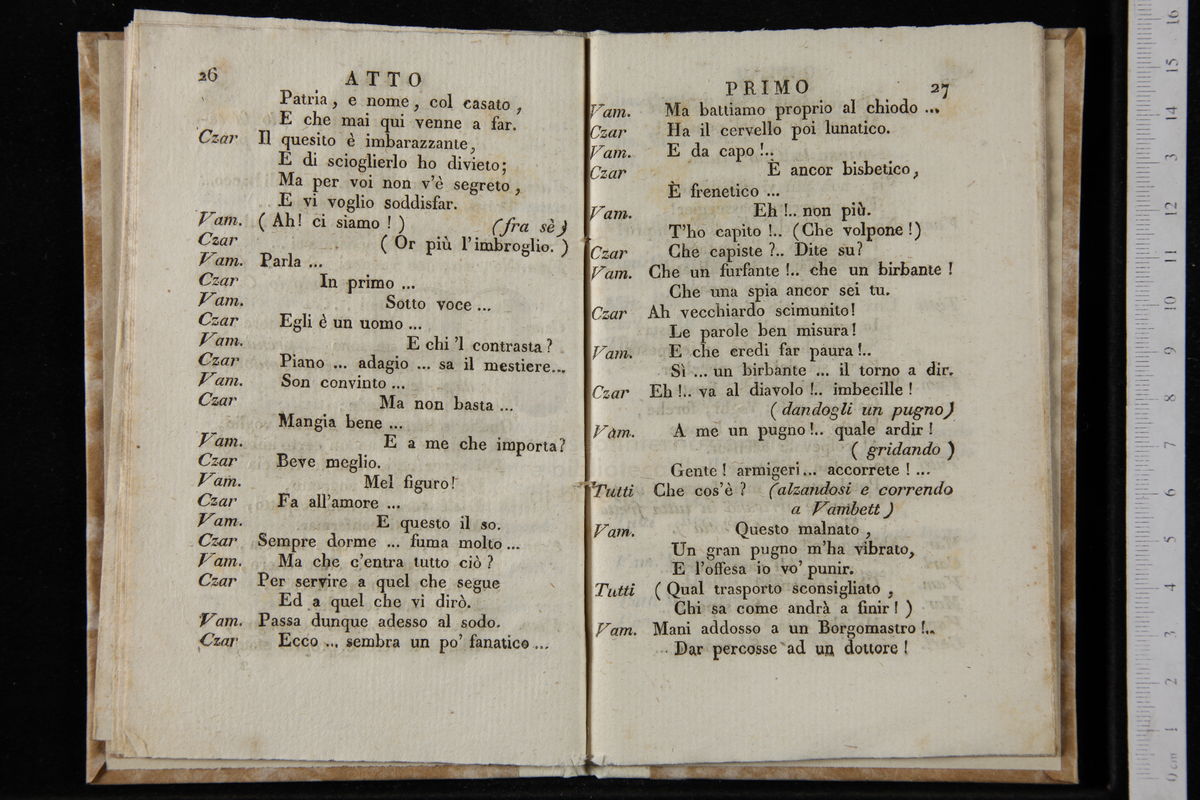 26 ATTO
Patria, e nome, col casato,
E che mai qui venne a far.
Czar Il quesito è imbarazzante,
E di scioglierlo ho divieto;
Ma per voi non v'è segreto,
E vi voglio soddisfar.
Vam. (Ah! ci siamo!) (fra sè)
Czar (Or più l'imbroglio.)
Vam. Parla ...
Czar In primo ...
Vam. Sotto voce ...
Czar Egli è un uomo ...
Vam. E chi 'l contrasta?
Czar Piano ... adagio ... sa il mestiere...
Vam. Son convinto ...
Czar Ma non basta ...
Mangia bene ...
Vam. E a me che importa?
Czar Beve meglio.
Vam. Mel figuro!
Czar Fa all'amore ...
Vam. E questo il so.
Czar Sempre dorme ... fuma molto ...
Vam. Ma che c'entra tutto ciò?
Czar Per servire a quel che segue
Ed a quel che vi dirò.
Vam. Passa dunque adesso al sodo.
Czar Ecco ... sembra un po' fanatico ...
PRIMO 27
Vam. Ma battiamo proprio al chiodo ...
Czar Ha il cervello poi lunatico.
Vam. E da capo!..
Czar È ancor bisbetico,
È frenetico ...
Vam. Eh!.. non più.
T'ho capito!.. (Che volpone!)
Czar Che capiste?.. Dite su?
Vam. Che un furfante!.. che un birbante!
Che una spia ancor sei tu.
Czar Ah vecchiardo scimunito!
Le parole ben misura!
Vam. E che credi far paura!..
Sì ... un birbante ... il torno a dir.
Czar Eh!.. va al diavolo!.. imbecille!
(dandogli un pugno)
Vam. A me un pugno!.. quale ardir!
(gridando)
Gente! armigeri... accorrete! ...
Tutti Che cos'è? (alzandosi e correndo
a Vambett)
Vam. Questo malnato,
Un gran pugno m'ha vibrato,
E l'offesa io vo' punir.
Tutti (Qual trasporto sconsigliato,
Chi sa come andrà a finir!)
Vam. Mani addosso a un Borgomastro!..
Dar percosse ad un dottore!
16
15
14
13
12
11
10
9
8
7
6
5
4
3
2
1
0 cm